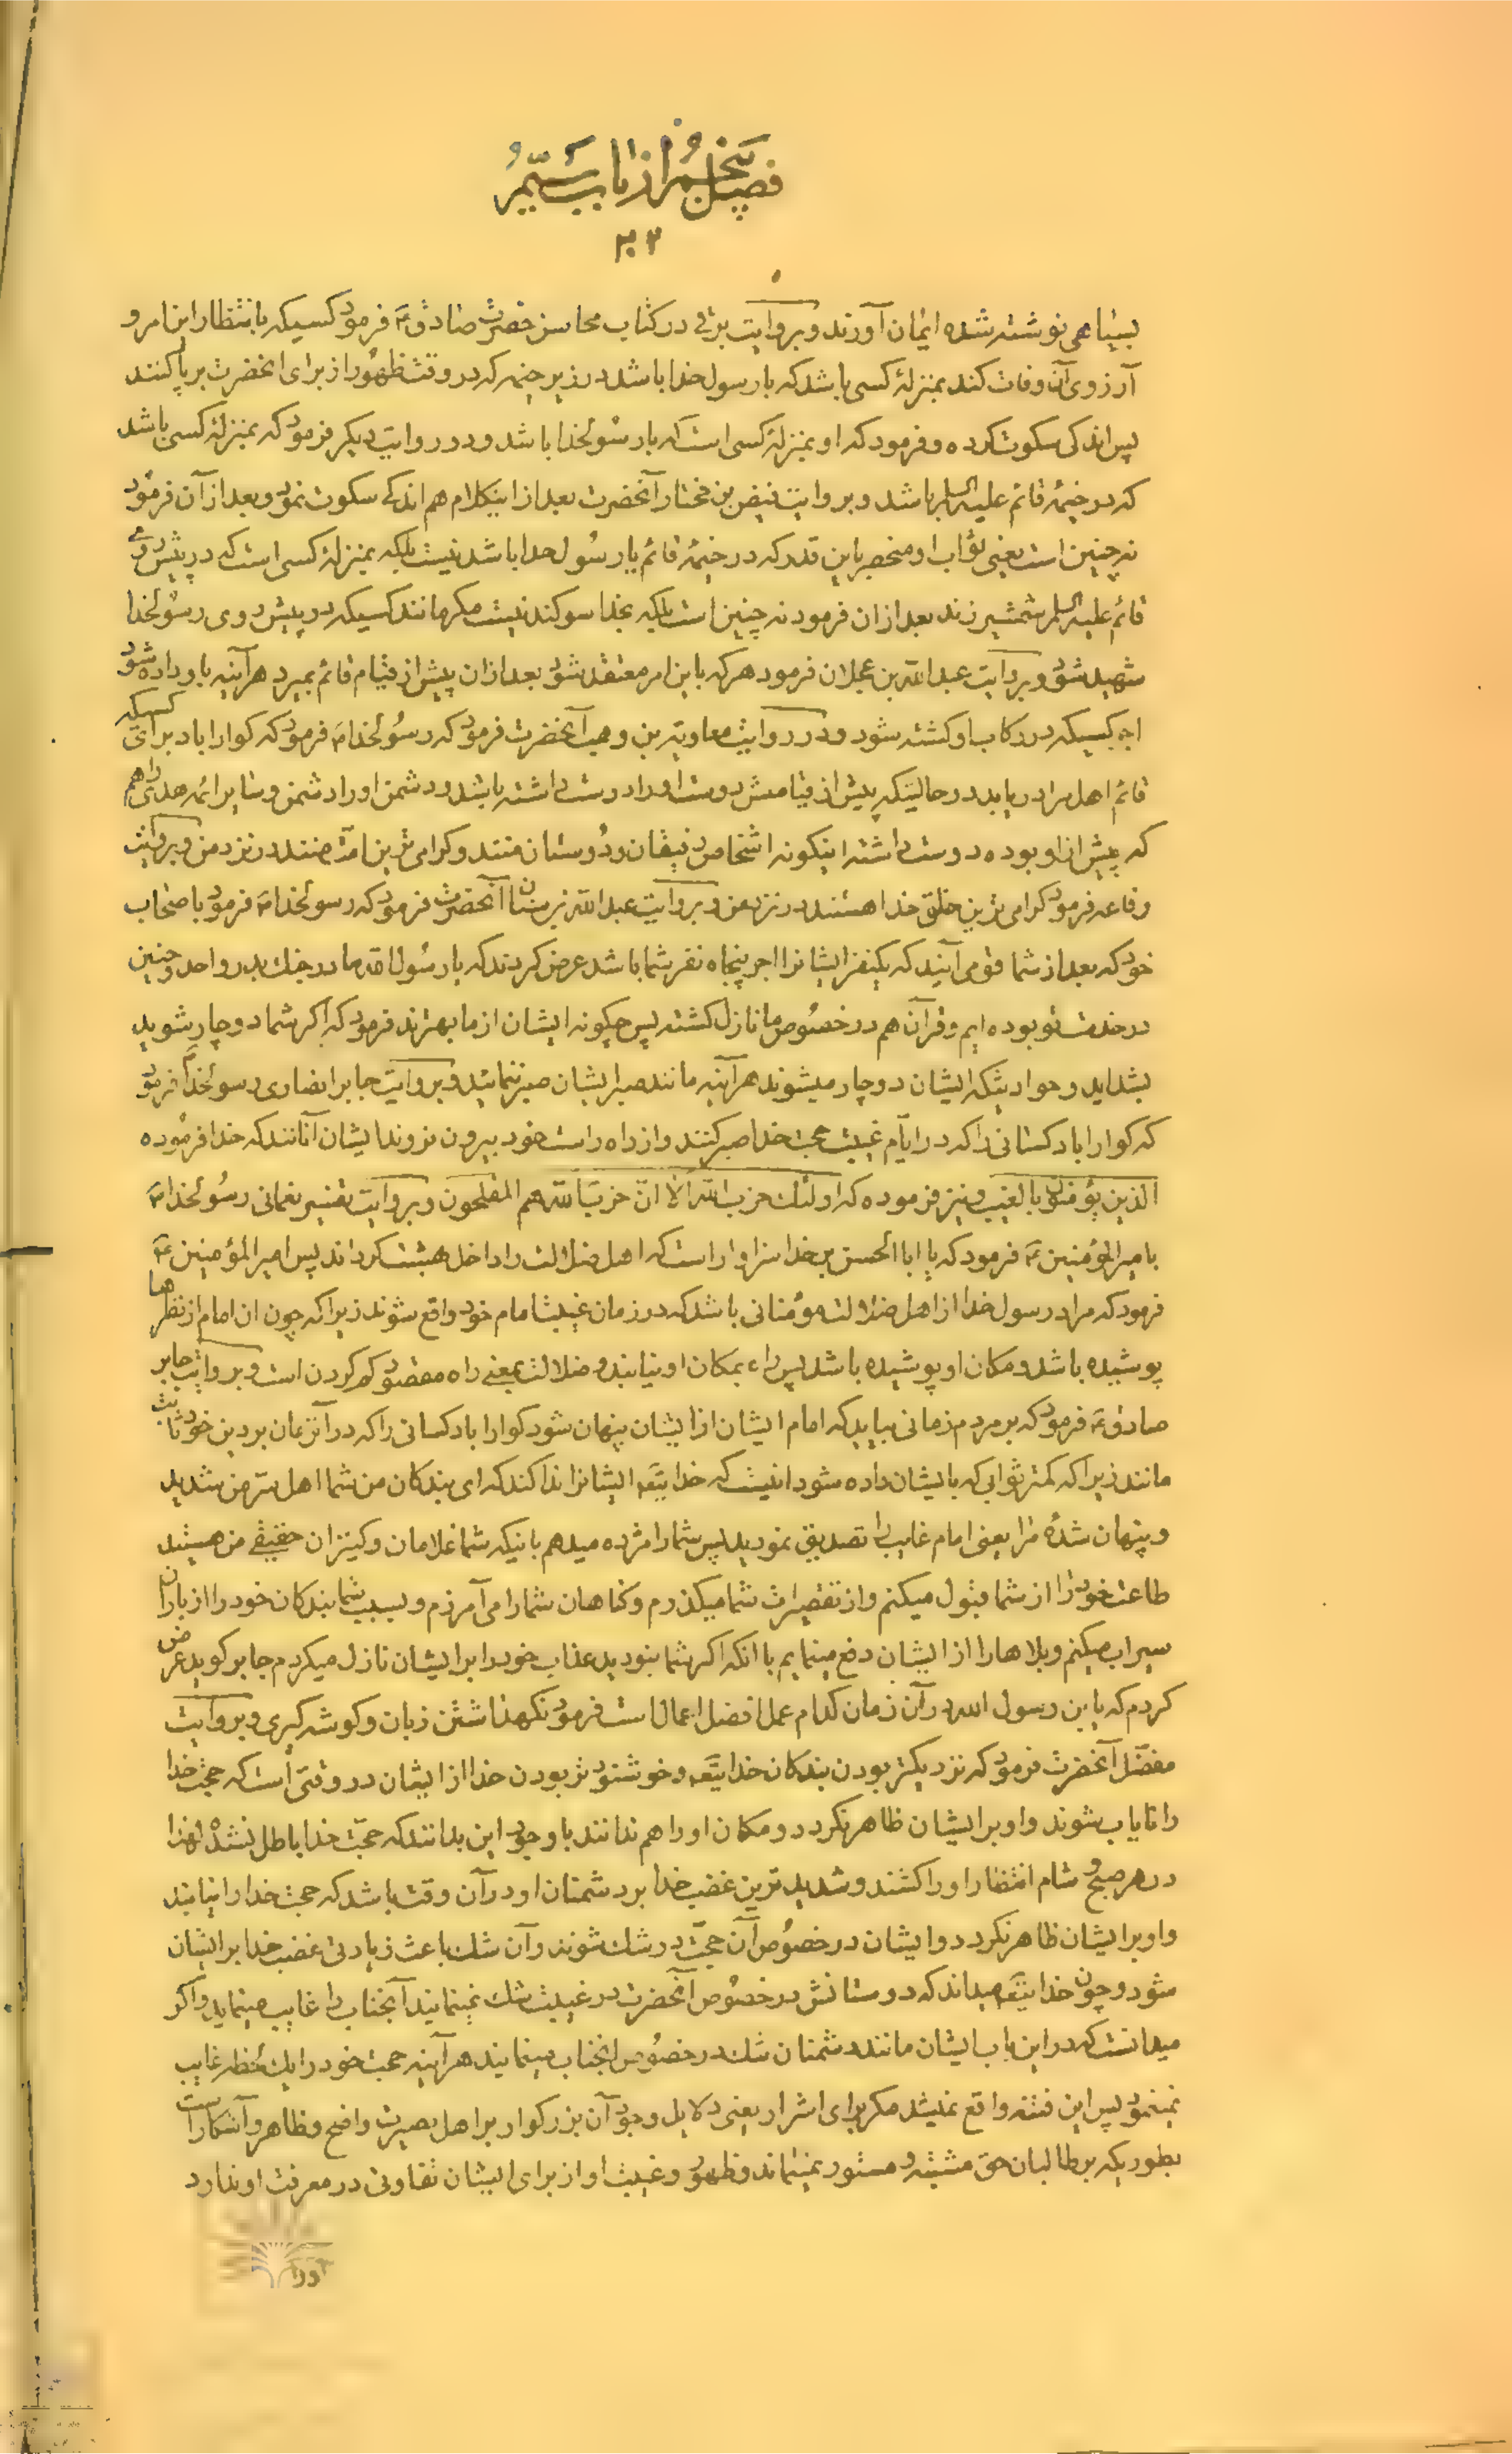 فصل پنجم از باب سیّم
۲۰۲
بسیاهی نوشته شده ایمان آورند و بروایت برقی در کتاب محاسن حضرت صادق ع فرمود کسیکه بانتظار این امر و
آرزوی آن وفات کند بمنزلهٔ کسی باشد که با رسول خدا باشد در زیر خیمه که در وقت ظهور از برای انحضرت بر پا کنند
پس اندکی سکوت کرده و فرمود که او بمنزلهٔ کسی است که با رسولخدا باشد و در روایت دیکر فرمود که بمنزلهٔ کسی باشد
که در خیمهٔ قائم علیه السلام باشد و بروایت فیض بن مختار آنحضرت بعد از اینکلام هم اندکی سکوت نمود و بعد از آن فرمود
نه چنین است یعنی ثواب او منحصر باین قدر که در خیمهٔ قائم یا رسول خدا باشد نیست بلکه بمنزلهٔ کسی است که در پیش روی
قائم علیه السلام شمشیر زند بعد از ان فرمود نه چنین است بلکه بخدا سوکند نیست مکر مانند کسیکه در پیش روی رسولخدا
شهید شود و بروایت عبد الله بن عجلان فرمود هر که باین امر معتقد شود بعد از ان پیش از قیام قائم بمیرد هر آینه باو داده شود
اجر کسیکه در رکاب او کشته شود و در روایت معاویة بن وهب آنحضرت فرمود که رسولخدا ص فرمود که کوارا باد برای کسیکه
قائم اهل مرا دریابد در حالتیکه پیش از قیامش دوست او را دوست داشته باشد و دشمن او را دشمن و سایر ائمه هدی را هم
که پیش از او بوده دوست داشته اینکونه اشخاص رفیقان و دوستان منند و کرامی ترین امّت منند در نزد من و بروایت
رفاعه فرمود کرامی ترین خلق خدا هستند در نزد من و بروایت عبد الله بن سنان آنحضرت فرمود که رسولخدا ص فرمود باصحاب
خود که بعد از شما قومی آیند که یکنفر ایشانرا اجر پنجاه نفر شما باشد عرض کردند که یا رسول الله ما در جنك بدر و احد و حنین
در خدمت تو بوده ایم و قرآن هم در خصوص ما نازل کشته پس چکونه ایشان از ما بهترند فرمود که اکر شما دوچار شوید
بشداید و حوادثیکه ایشان دوچار میشوند هر آینه مانند صبر ایشان صبر ننمائید و بروایت جابر انصاری رسولخدا ص فرمود
که کوارا باد کسانی را که در ایّام غیبت حجت خدا صبر کنند و از راه راست خود بیرون نروند ایشان آنانند که خدا فرموده
الذین یؤمنون بالغیب و نیز فرموده که اولئك حزب الله الا انّ حزب الله هم المفلحون و بروایت تفسیر نعمانی رسولخدا ص
بامیر المؤمنین ع فرمود که یا ابا الحسن بر خدا سزاوار است که اهل ضلالت را داخل بهشت کرداند پس امیر المؤمنین ع
فرمود که مراد رسول خدا از اهل ضلالت مؤمنانی باشد که در زمان غیبت امام خود واقع شوند زیرا که چون ان امام از نظرها
پوشیده باشد و مکان او پوشیده باشد پس راه بمکان او نیابند و ضلالت بمعنی راه مقصود کم کردن است و بروایت جابر
صادق ع فرمود که بر مردم زمانی بیاید که امام ایشان از ایشان پنهان شود کوارا باد کسانی را که در آنزمان بر دین خود ثابت
مانند زیرا که کمتر ثوابی که بایشان داده شود اینست که خدایتعه ایشانرا ندا کند که ای بندکان من شما اهل سّر من شدید
و پنهان شدهٔ مرا یعنی امام غایب را تصدیق نمودید پس شما را مژده میدهم باینکه شما غلامان و کنیزان حقیقی من هستید
طاعت خود را از شما قبول میکنم و از تقصیرات شما میکذرم و کناهان شما را می آمرزم و بسبب شما بندکان خود را از باران
سیراب میکنم و بلاها را از ایشان دفع مینمایم با انکه اکر شما نبودید عذاب خود را بر ایشان نازل میکردم جابر کوید عرض
کردم که یا بن رسول الله در آن زمان کدام عمل افضل اعمال است فرمود نکهداشتن زبان و کوشه کیری و بروایت
مفضّل آنحضرت فرمود که نزدیکتر بودن بندکان خدایتعه و خوشنودتر بودن خدا از ایشان در وقتی است که حجت خدا
را نایاب شوند و او بر ایشان ظاهر نکردد و مکان او را هم ندانند با وجود این بدانند که حجّت خدا باطل نشده لهذا
در هر صبح و شام انتظار او را کشند و شدید ترین غضب خدا بر دشمنان او در آن وقت باشد که حجت خدا را نیابند
و او بر ایشان ظاهر نکردد و ایشان در خصوص آن حجّت در شك شوند و آن شك باعث زیادتی غضب خدا بر ایشان
شود و چون خدایتعه میداند که دوستانش در خصوص آنحضرت در غیبت شك نمینمایند آنجناب را غایب مینماید و اکر
میدانست که در این باب ایشان مانند دشمنان شك در خصوص انجناب مینمایند هر آینه حجت خود را یك لحظه غایب
نمینمود پس این فتنه واقع نمیشد مکر برای اشرار یعنی دلایل وجود آن بزرکوار بر اهل بصیرت واضح و ظاهر و آشکار است
بطوریکه بر طالبان حق مشتبه و مستور نمیماند و ظهور و غیبت او از برای ایشان تفاوتی در معرفت او ندارد